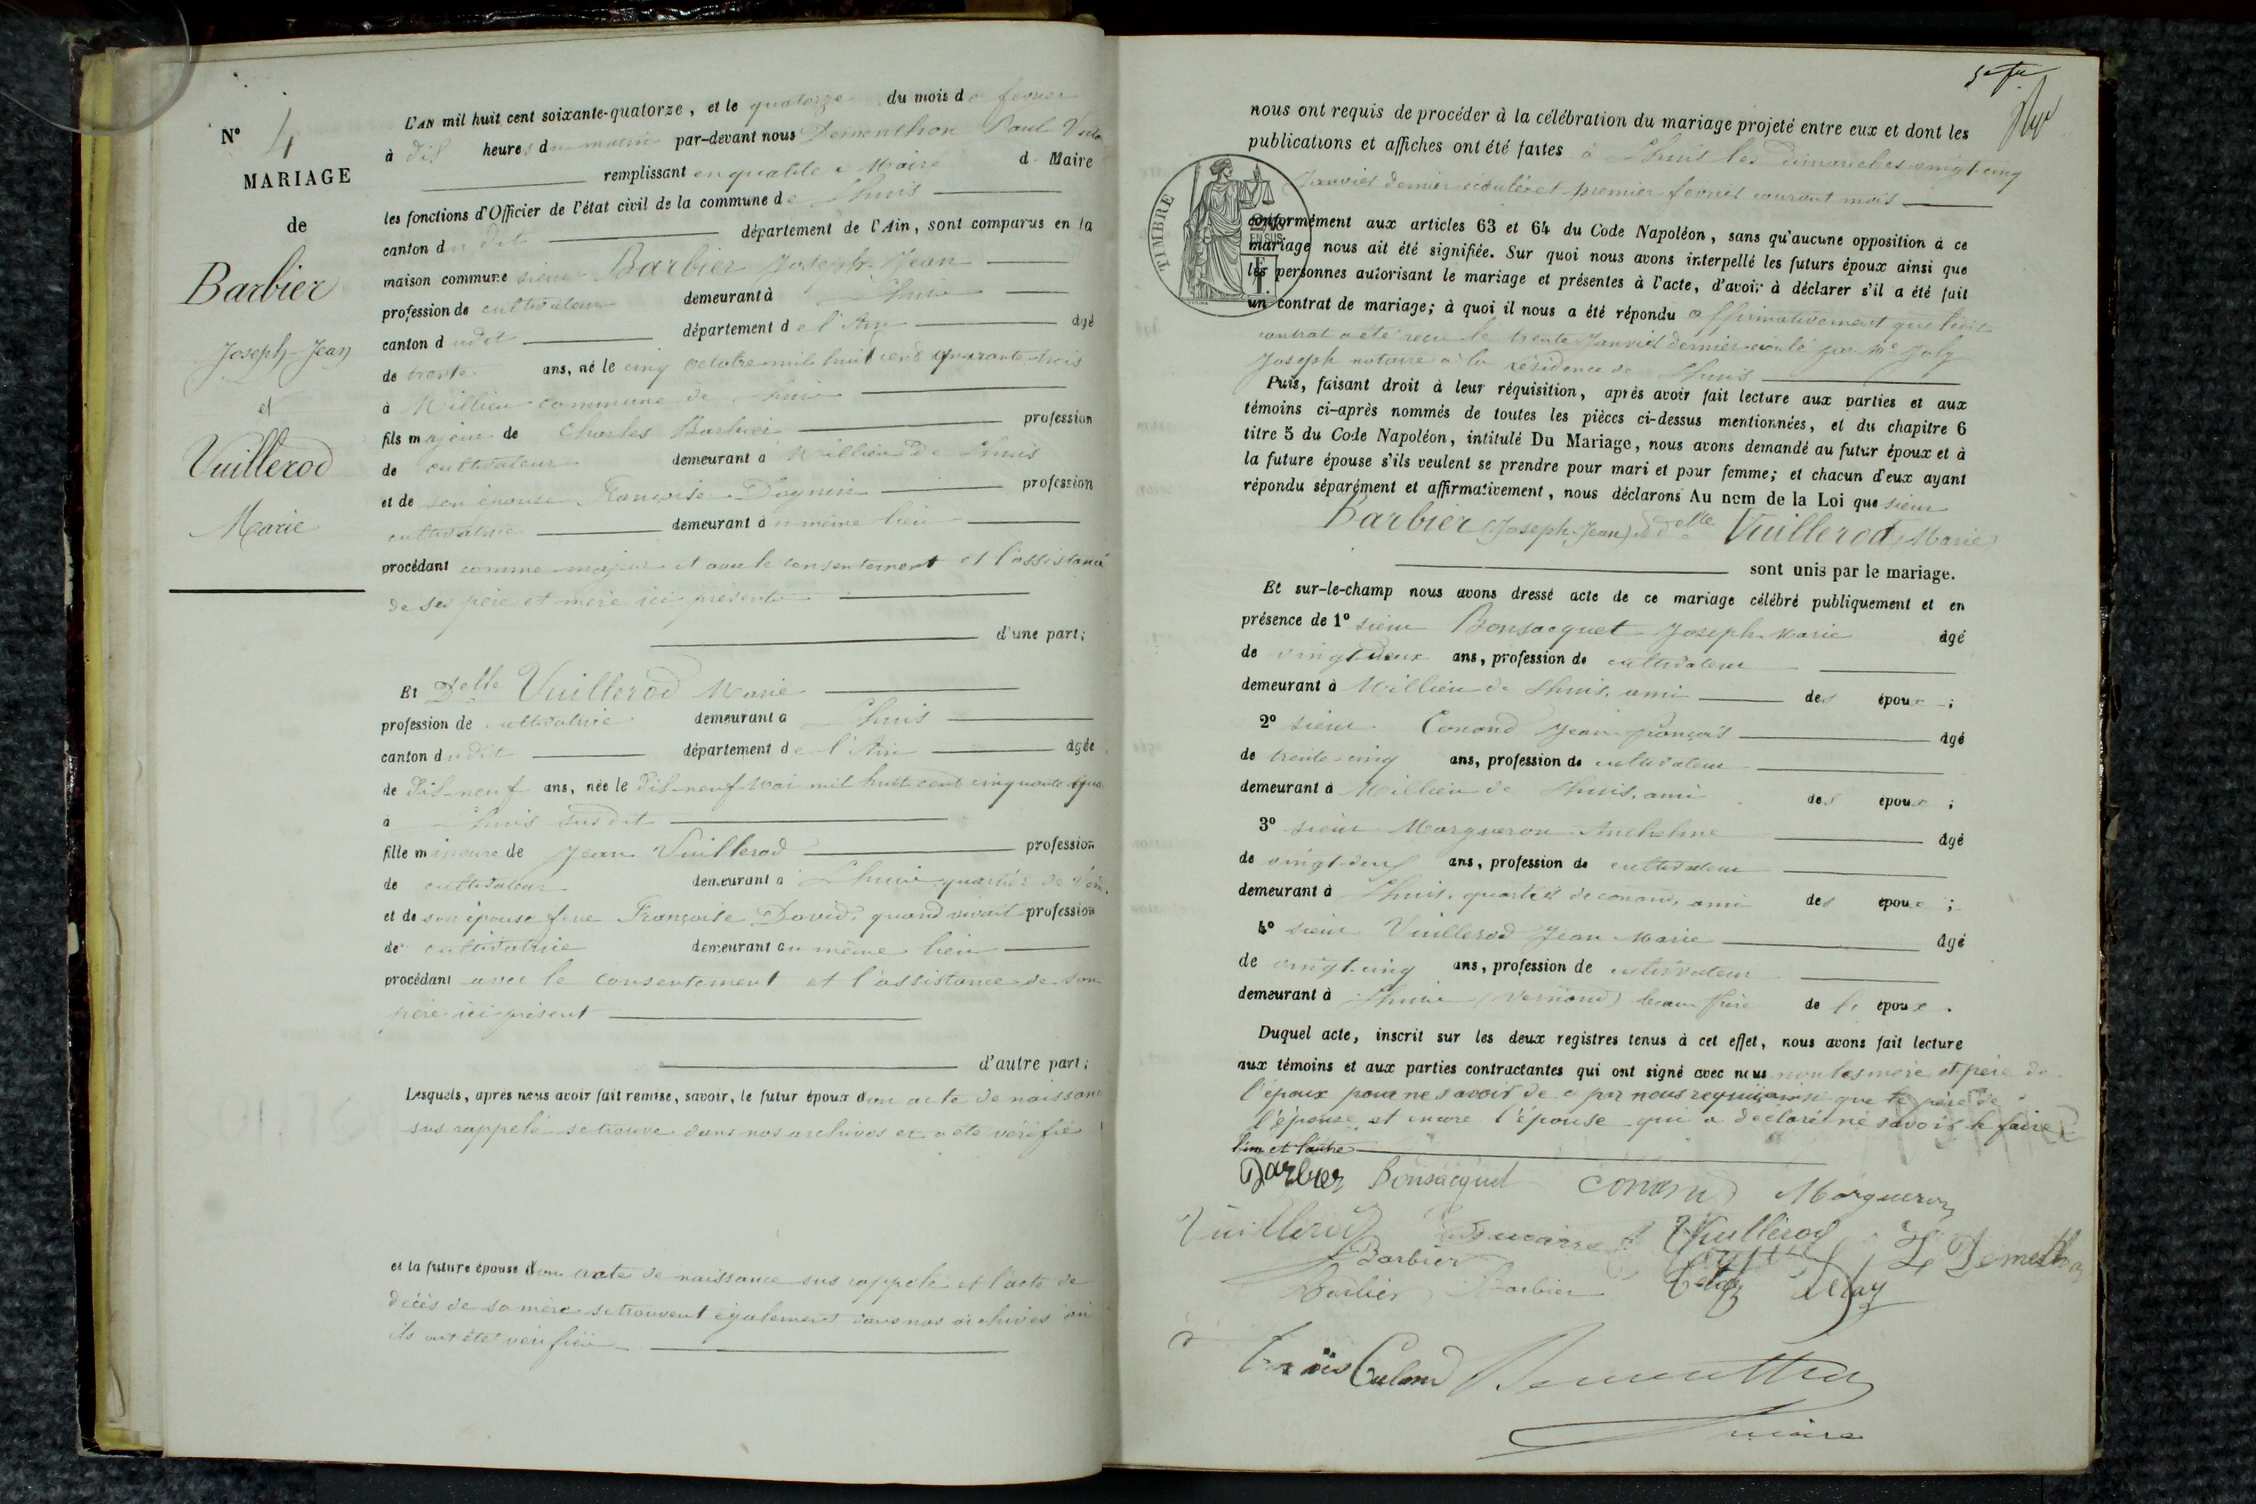 N° 4
MARIAGE
de
Barbier
Joseph-Jean
et
Vuillerod
Marie
L'AN mil huit cent soixante-quatorze, et le quatorze du mois de février
à dix heures du matin par-devant nous Dementhon Paul
remplissant en qualité de Maire d Maire
les fonctions d'Officier de l'état civil de la commune de Lhuis
canton dudit département de l'Ain, sont comparus en la
maison commune sieur Barbier Joseph-Jean
profession de cultivateur demeurant à Lhuis
canton dudit département de l'Ain âgé
de trente ans, né le cinq octobre mil huit cent quarante-trois
à Millieu commune de Lhuis
fils majeur de Charles Barbier profession
de cultivateur demeurant à Millieu de Lhuis
et de son épouse Françoise Dognin profession
cultivatrice demeurant au même lieu
procédant comme majeur et avec le consentement et l'assistance
de ses père et mère ici présents
d'une part;
Et Delle Vuillerod Marie
profession de cultivatrice demeurant à Lhuis
canton dudit département de l'Ain âgée
de dix-neuf ans, née le dix-neuf mai mil huit cent cinquante
à Lhuis susdit
fille mineure de Jean Vuillerod profession
de cultivateur demeurant à Lhuis quartier de
et de son épouse feue Françoise David, quand vivait profession
de cultivatrice demeurant au même lieu
procédant avec le consentement et l'assistance de son
père ici présent
d'autre part;
Lesquels, après nous avoir fait remise, savoir, le futur époux d'un acte de naissance
sus rappelé se trouve dans nos archives et a été vérifié
et la future épouse d'un acte de naissance sus rappelé et l'acte de
décès de sa mère se trouvent également dans nos archives où
ils ont été vérifiés
nous ont requis de procéder à la célébration du mariage projeté entre eux et dont les
publications et affiches ont été faites à Lhuis les dimanches vingt-cinq
Janvier dernier écoulé et premier février courant mois
TIMBRE
EN SUS
conformément aux articles 63 et 64 du Code Napoléon, sans qu'aucune opposition à ce
mariage nous ait été signifiée. Sur quoi nous avons interpellé les futurs époux ainsi que
les personnes autorisant le mariage et présentes à l'acte, d'avoir à déclarer s'il a été fait
un contrat de mariage; à quoi il nous a été répondu affirmativement que ledit
contrat a été reçu le trente Janvier dernier écoulé par Me Joly
Joseph notaire à la résidence de Lhuis
Puis, faisant droit à leur réquisition, après avoir fait lecture aux parties et aux
témoins ci-après nommés de toutes les pièces ci-dessus mentionnées, et du chapitre 6
titre 5 du Code Napoléon, intitulé Du Mariage, nous avons demandé au futur époux et à
la future épouse s'ils veulent se prendre pour mari et pour femme; et chacun d'eux ayant
répondu séparément et affirmativement, nous déclarons Au nom de la Loi que sieur
Barbier (Joseph-Jean) et delle Vuillerod (Marie)
sont unis par le mariage.
Et sur-le-champ nous avons dressé acte de ce mariage célébré publiquement et en
présence de 1° sieur Bonsacquet Joseph-Marie âgé
de vingt-deux ans, profession de cultivateur
demeurant à Millieu de Lhuis, ami des époux;
2° sieur Conand Jean-François âgé
de trente-cinq ans, profession de cultivateur
demeurant à Millieu de Lhuis, ami des époux;
3° sieur Margueron Anthelme âgé
de vingt-deux ans, profession de cultivateur
demeurant à Lhuis, quartier de conand, ami des époux;
4° sieur Vuillerod Jean-Marie âgé
de vingt-cinq ans, profession de cultivateur
demeurant à Lhuis (Vernand) beau frère de l' époux.
Duquel acte, inscrit sur les deux registres tenus à cet effet, nous avons fait lecture
aux témoins et aux parties contractantes qui ont signé avec nous non les mère et père de
l'époux pour ne savoir de ce par nous requis ainsi que le père de
l'épouse, et encore l'épouse qui a déclaré ne savoir le faire
l'un et l'autre
Barbier Bonsacquet Conand Margueron
Vuillerod Vuillerod
Barbier
Barbier Barbier
Culand Dementhon
maire